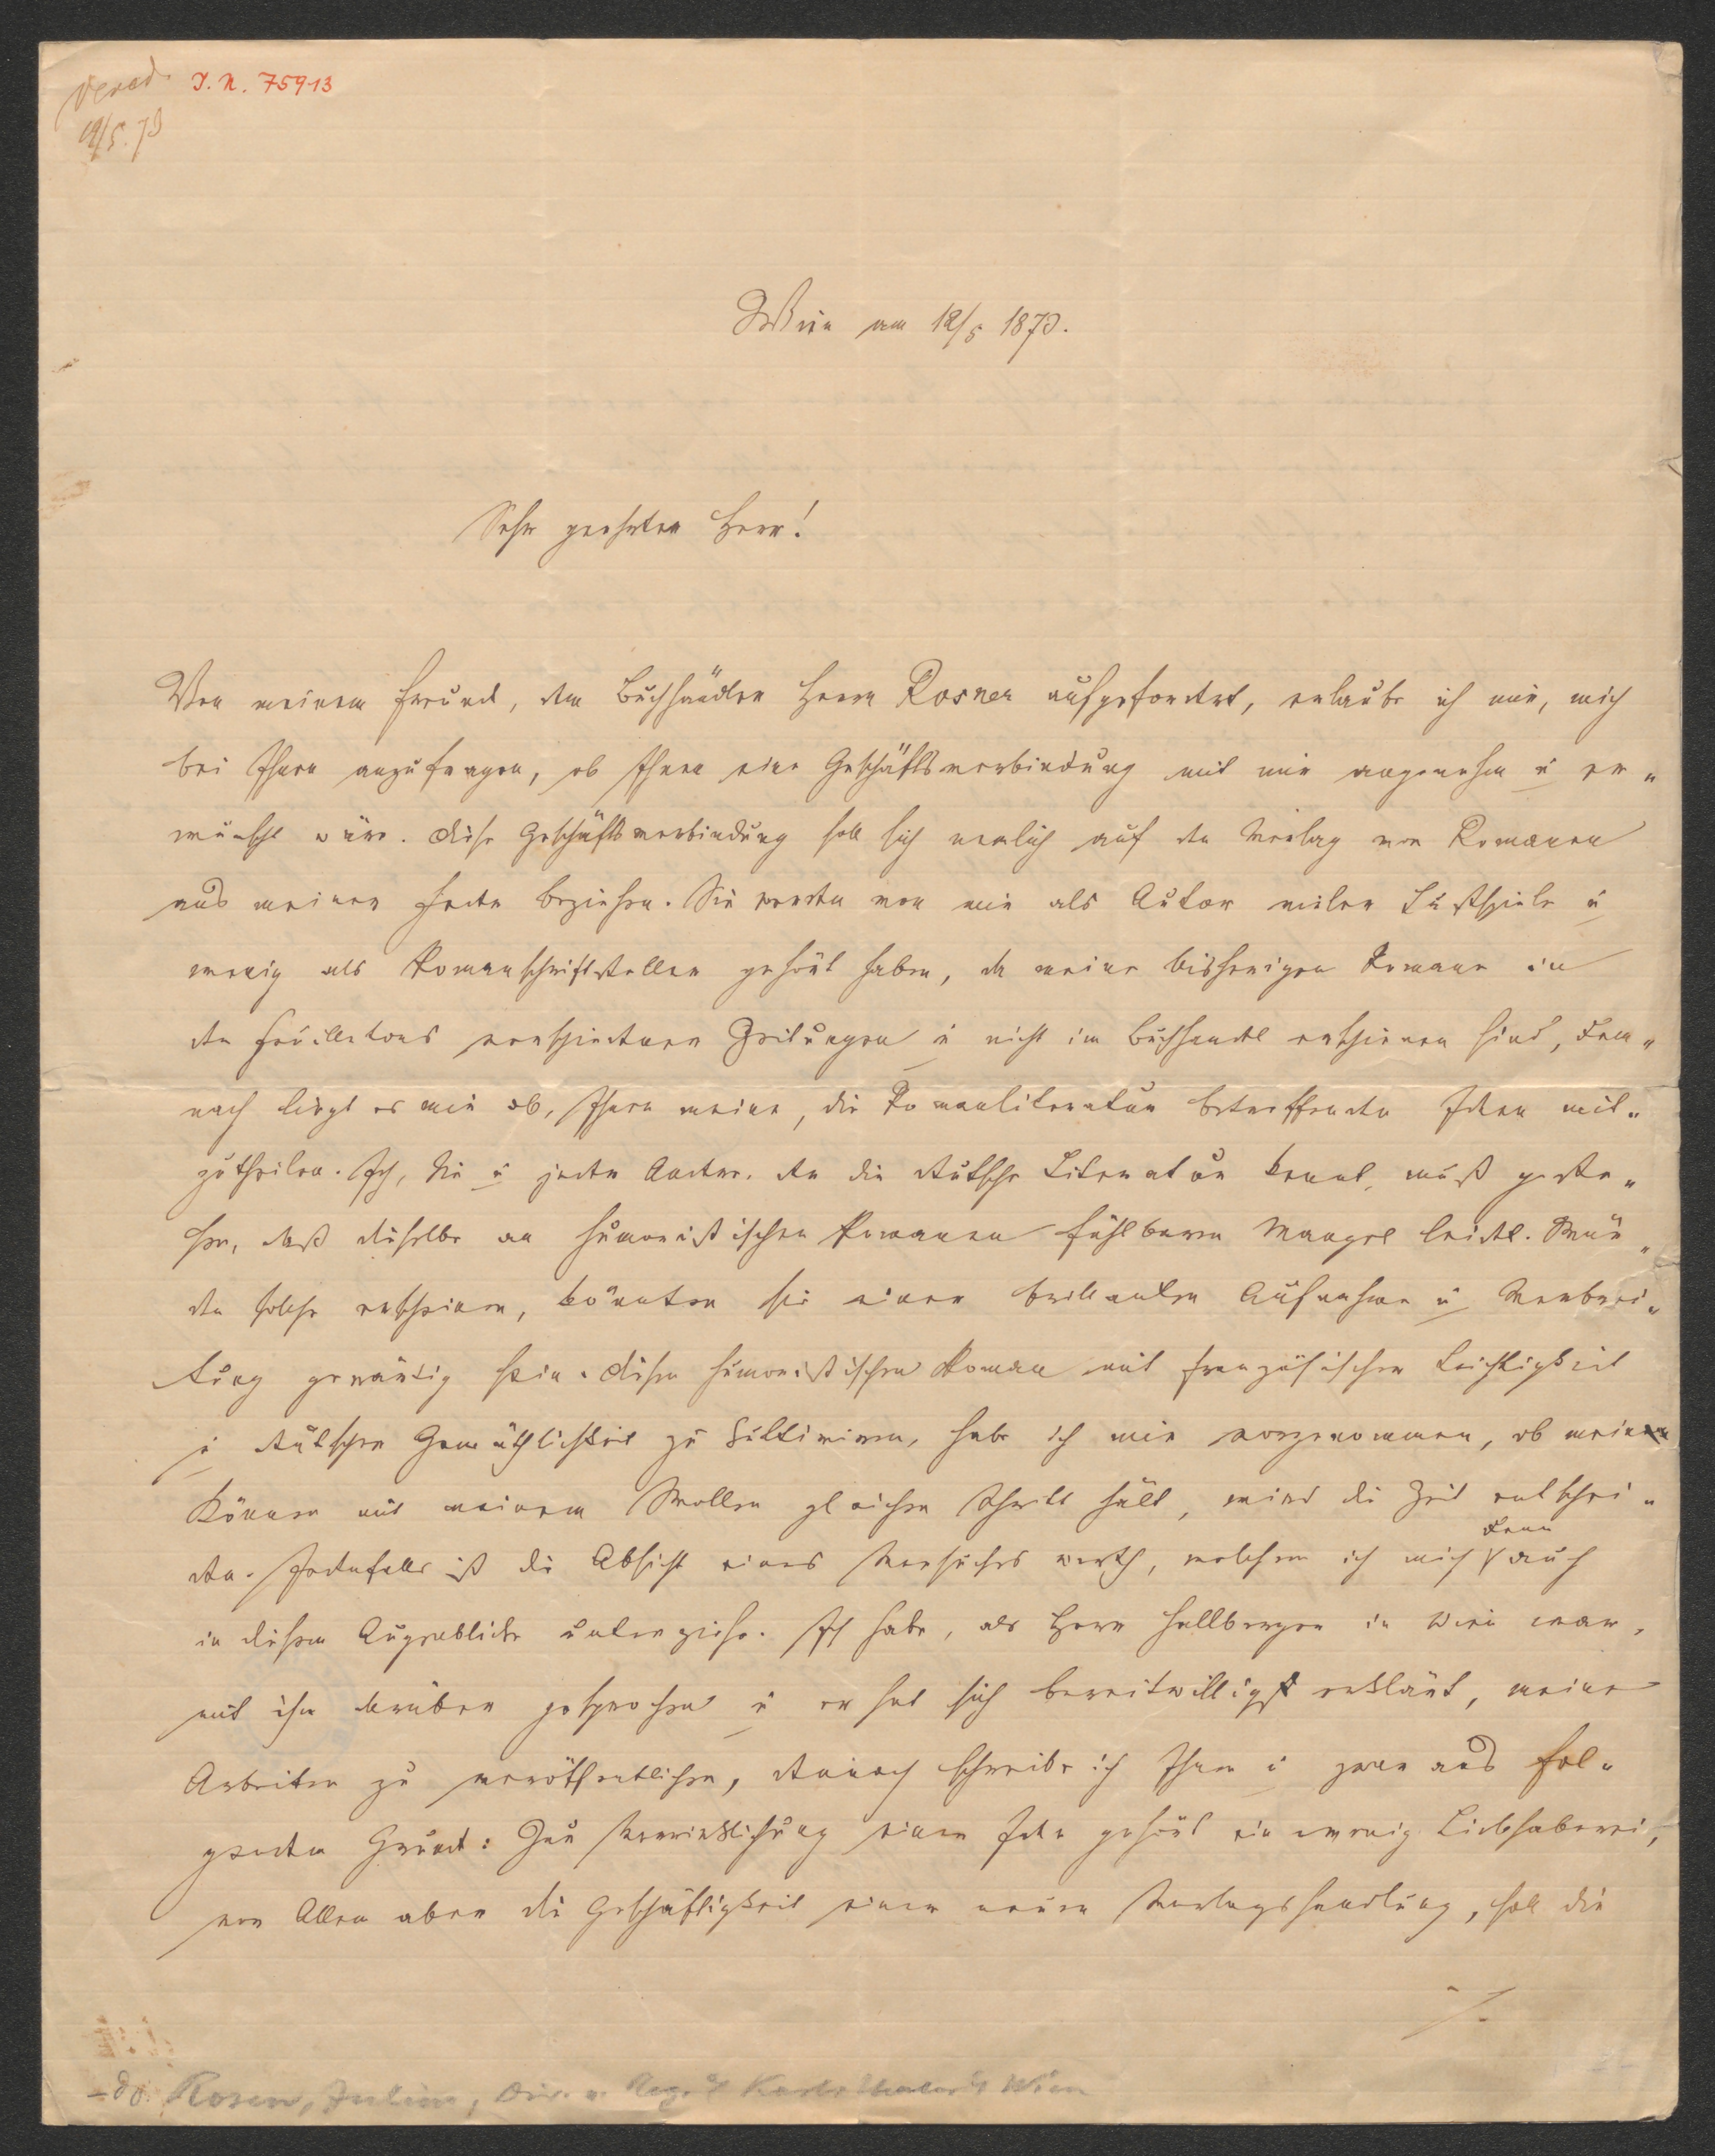 I. N. 75913
19/5. 73
Wien am 12/5 1873.
Sehr geehrter Herr!
Von meinem Freund, dem Buchhändler Herrn Rosner aufgefordert, erlaube ich mir, mich
bei Ihnen anzufragen, ob Ihnen eine Geschäftsverbindung mit mir angenehm u er„
wünscht wäre. Diese Geschäftsverbindung soll sich nemlich auf den Verlag von Romanen
aus meiner Feder beziehen. Sie werden von mir als Autor vieler Lustspiele u
wenig als Romanschriftsteller gehört haben, da meine bisherigen Romane in
den Feuilletons verschiedener Zeitungen u nicht im Buchhandel erschienen sind, dem„
nach liegt es mir ob, Ihnen meine, die Romanliteratur betreffenden Ideen mit„
zutheilen. Ich, Sie u jeder Andere, der die deutsche Literatur kennt, muß geste„
hen, daß dieselbe an humoristischen Romanen fühlbaren Mangel leidet. Wür„
den solche erscheinen, könnten sie einer brillanten Aufnahme u Verbrei„
tung gewärtig sein. Diesen humoristischen Roman mit französischer Leichtigkeit
u deutscher Gemüthlichkeit zu kultiviren, habe ich mir vorgenommen, ob mein
Können mit meinem Wollen gleichen Schritt hält, wird die Zeit entschei„
den. Jedenfalls ist die Absicht eines Versuches werth, welchem ich mich denn auch
in diesem Augenblicke unterziehe. Ich habe, als Herr Hallberger in Wien war,
mit ihm darüber gesprochen u er hat sich bereitwilligst erklärt, meine
Arbeiten zu veröffentlichen, dennoch schreibe ich Ihnen u zwar aus fol„
genden Grund: Zur Verwirklichung einer Idee gehört ein wenig Liebhaberei,
vor Allem aber die Geschäftigkeit einer neuen Verlagshandlung, soll die
./.
Rosen, Julius, Dir. u. Reg. d Karlstheaters Wien